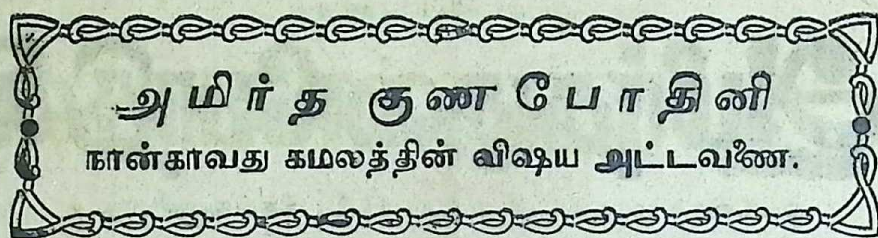 அமிர்த குண போதினி
நான்காவது கமலத்தின் விஷய அட்டவணை.